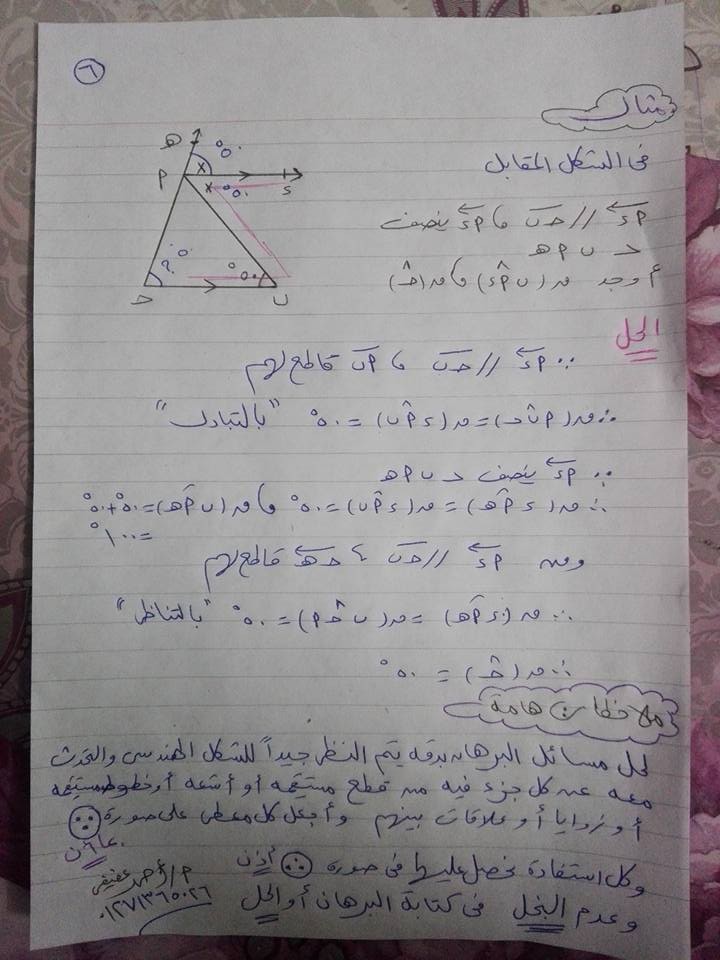 ٦
مثال
فى الشكل المقابل
أء // حـ ب ، أء ينصف
> ب أ هـ
أوجد ق(ب أ ء) ، ق(حـ)
هـ
أ
ء
حـ
ب
×
×
٥٠°
٥٠°
٥٠°
٥٠° ؟
الحل
∵ أء // حـ ب ، أب قاطع لهم
∴ ق(أ ب حـ) = ق(ء أ ب) = ٥٠° "بالتبادل"
∵ أء ينصف > ب أ هـ
∴ ق(ء أ هـ) = ق(ء أ ب) = ٥٠° ، ق(ب أ هـ) = ٥٠° + ٥٠°
= ١٠٠°
ومنه أء // حـ ب ، حـ هـ قاطع لهم
∴ ق(ء أ هـ) = ق(ب حـ أ) = ٥٠° "بالتناظر"
∴ ق(حـ) = ٥٠°
ملاحظات هامة
لحل مسائل البرهان بدقه يتم النظر جيداً للشكل الهندسى والتحدث
معه عن كل جزء فيه من قطع مستقيمه أو أشعه أو خطوط مستقيمه
أو زوايا أو علاقات بينهم وأجعل كل معطى على صورة ∵
بما أن
وكل استفادة نحصل عليها فى صورة ∴ إذن
وعدم البخل فى كتابة البرهان أو الحل
م/أحمد عفيفى
٠١٢٧١٣٦٥٠٢٦